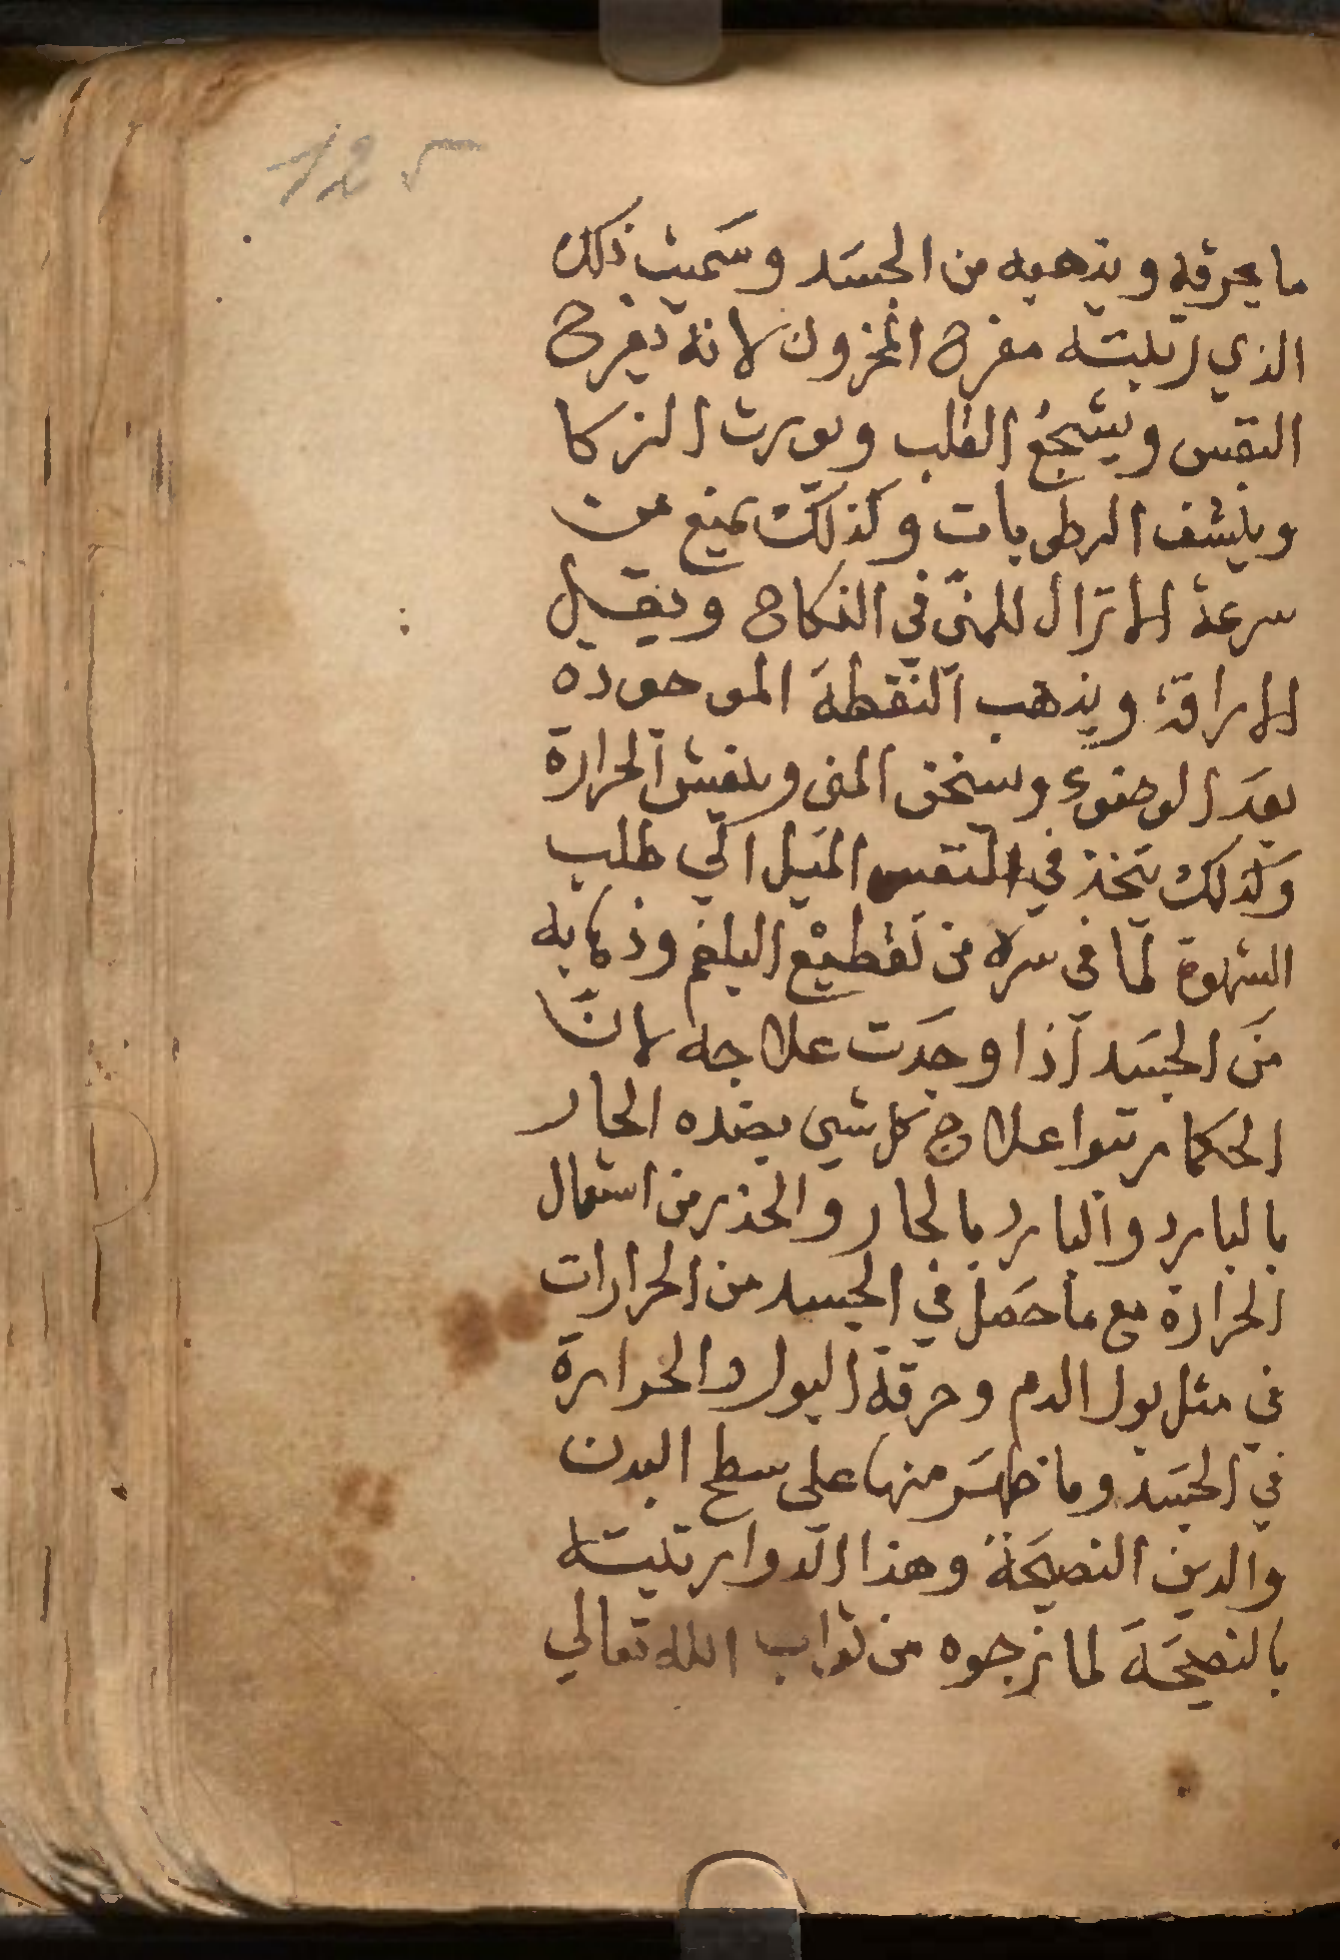 125
ما يحرقه ويذهبه من الجسد وسميت ذلك
الذي رتبته مفرح المحزون لانه يفرح
النفس ويشجع القلب ويورث الزكا
وينشف الرطوبات وكذلك يمنع من
سرعة الانزال للمني في النكاح ويقيل
الاراقة ويذهب النقطة الموجوده
بعد الوضوء ويسخن المني وينفش الحرارة
وكذلك يتخذ في النفس الميل الي طلب
الشهوة لما في سره من تقطيع البلغم وذهابه
من الجسد اذا وجدت علاجه لان
الحكما رتبوا علاج كل شي بضده الحار
بالبارد والبارد بالحار والحذر من استعمال
الحرارة مع ما حصل في الجسد من الحرارات
في مثل بول الدم وحرقة البول والحرارة
في الجسد وما ظهر منها على سطح البدن
والدين النصيحة وهذا الدوا رتبته
بالنصيحة لما نرجوه من ثواب الله تعالي